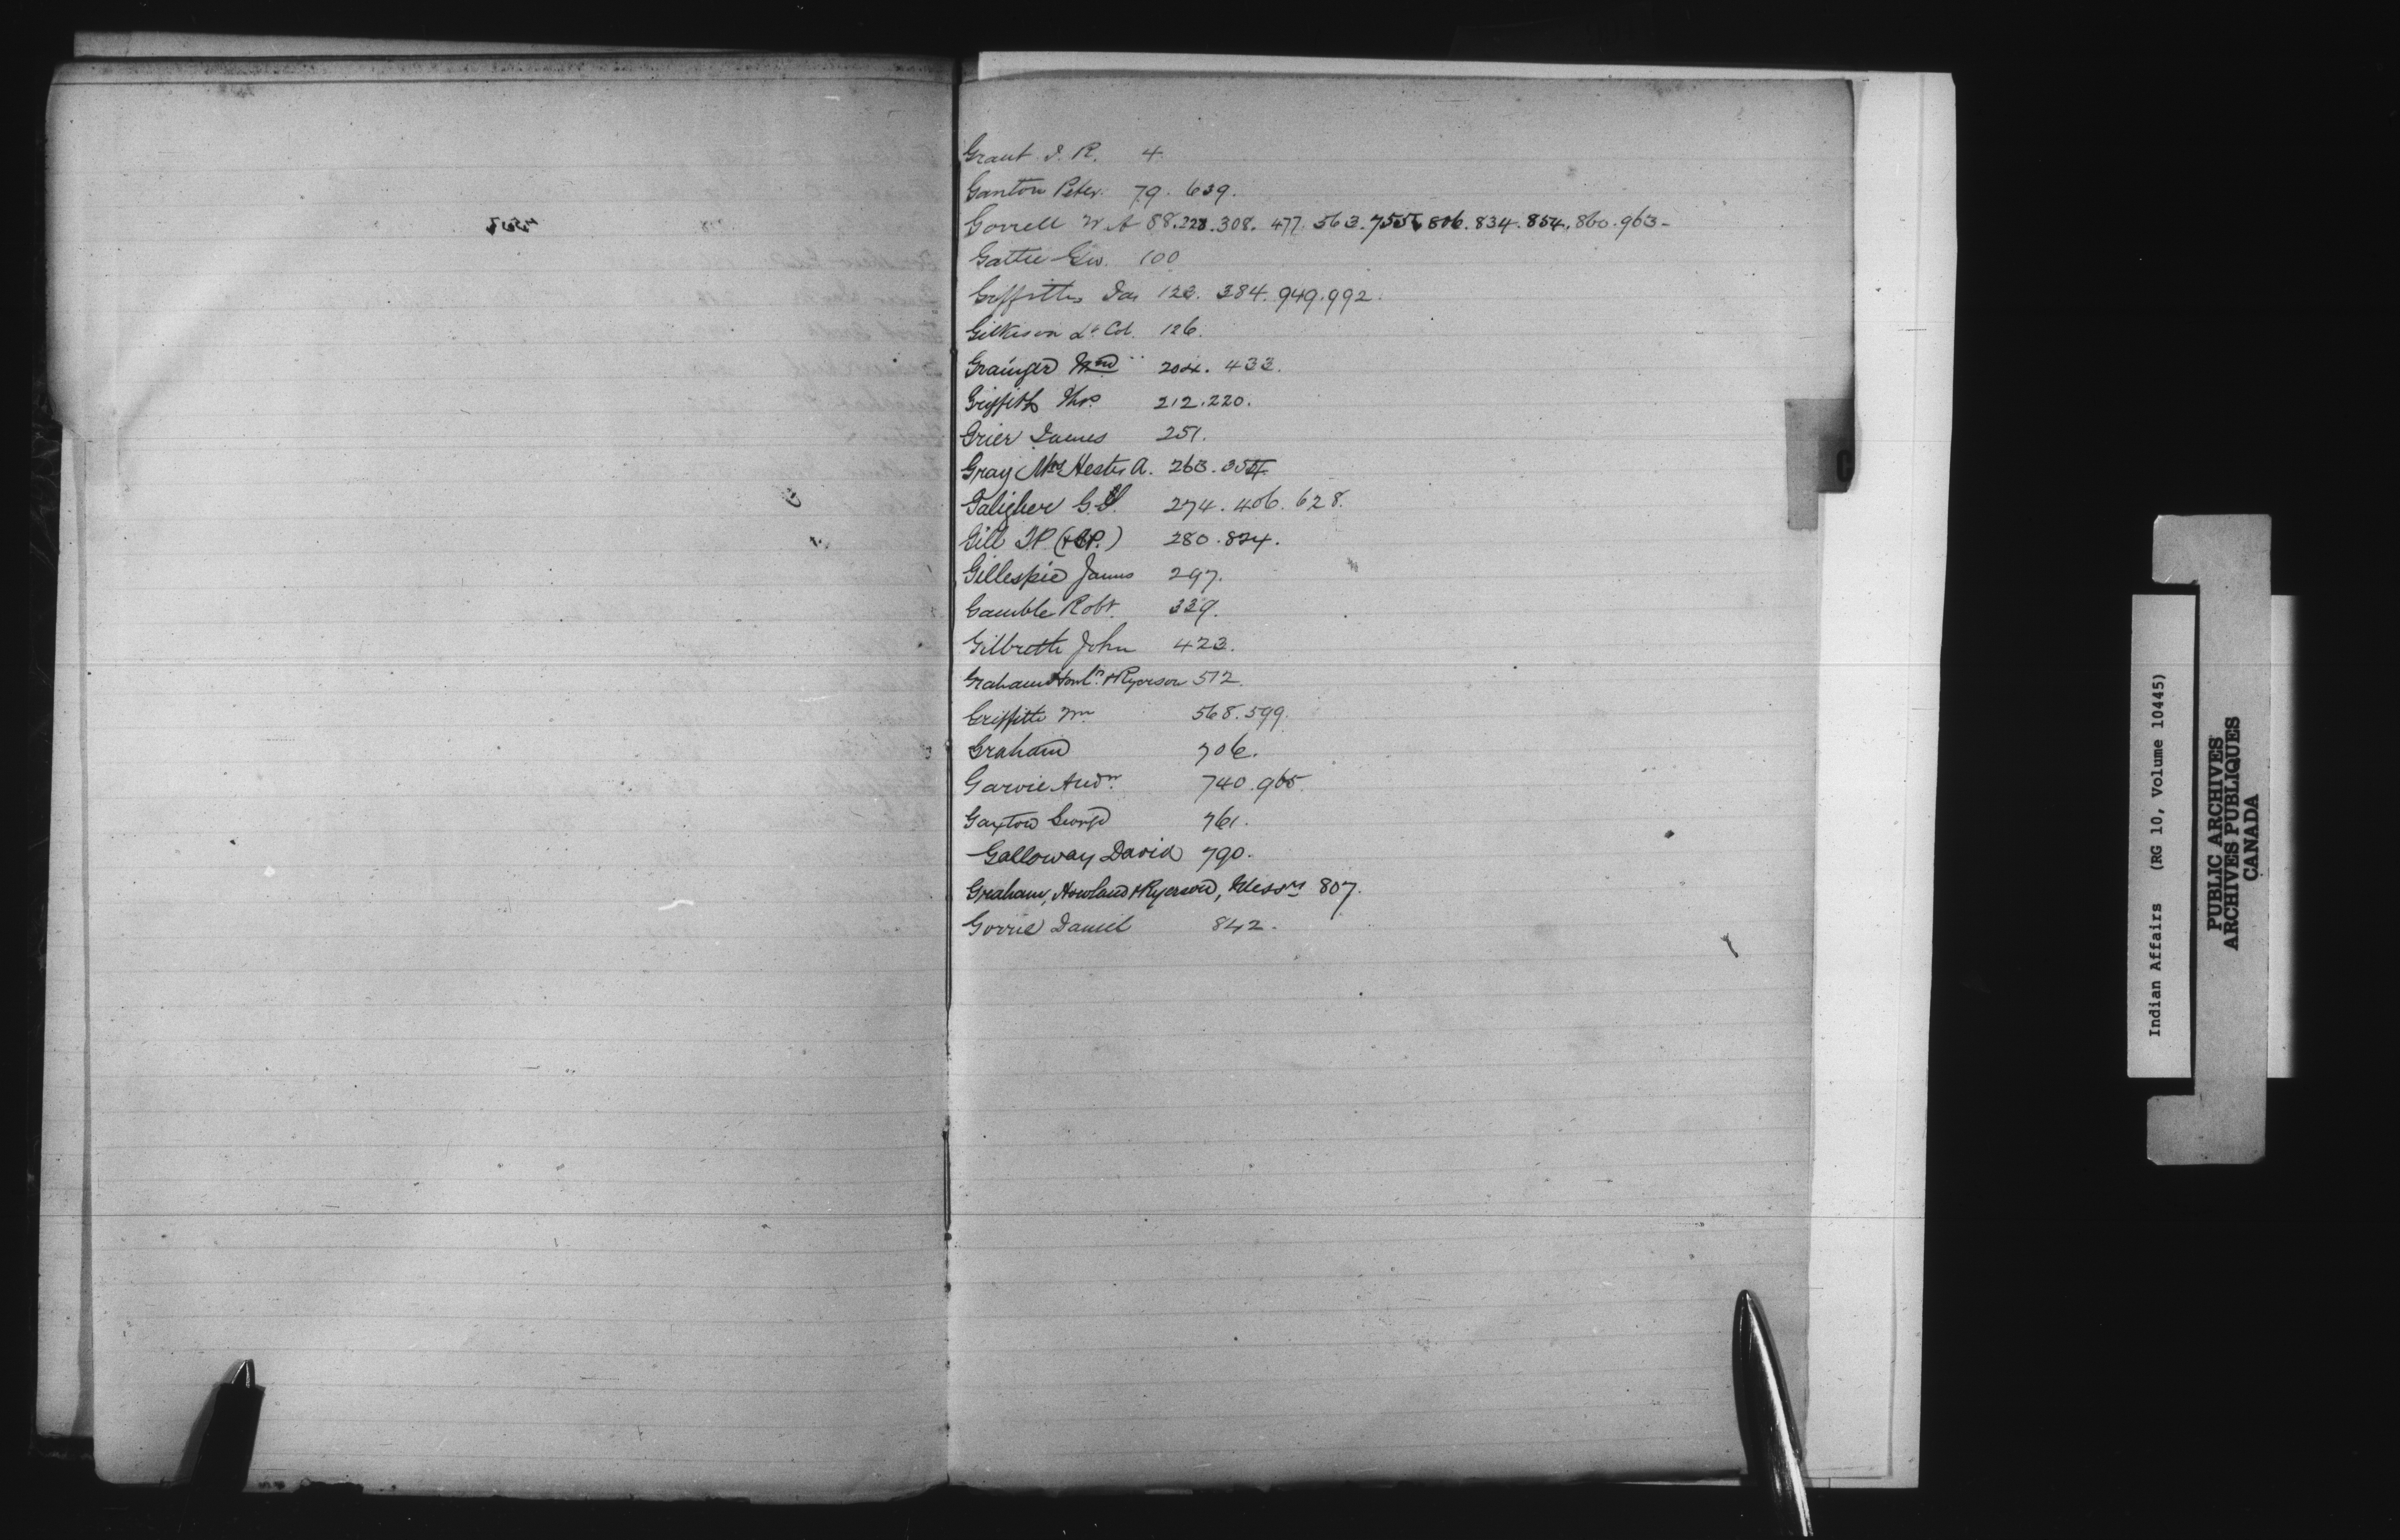 Grant J. R. 4
Ganton Peter. 79. 639.
Gorrell W A 88. 228. 308. 477. 563. 755. 806. 834. 854. 860. 963-
Gattie Geo. 100
Griffiths Jas 123. 384. 949. 992.
Gilkison Lt Col. 126.
Grainger Wm 204. 433.
Griffith Thos. 212. 220.
Grier James 251.
Gray Mrs Hester A. 263. 354
Galigher G. 274. 406. 628.
Gill I.P. 280. 824.
Gillespie James 297.
Gamble Robt. 339.
Gilbretth John 423.
Graham Howld. & Ryerson 512.
Griffith Wm 568. 599.
Graham 706.
Garvie Andw. 740. 965.
Gaxton George 761.
Galloway David 790.
Graham, Howland & Ryerson, Messrs 807.
Gorrie Daniel 842.
G
Indian Affairs (RG 10, Volume 10445)
PUBLIC ARCHIVES
ARCHIVES PUBLIQUES
CANADA